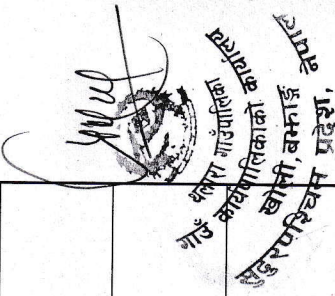 थलारा गाउँपालिका
गाउँ कार्यपालिकाको कार्यालय
खोली, बझाङ्ग
सुदूरपश्चिम प्रदेश, नेपाल